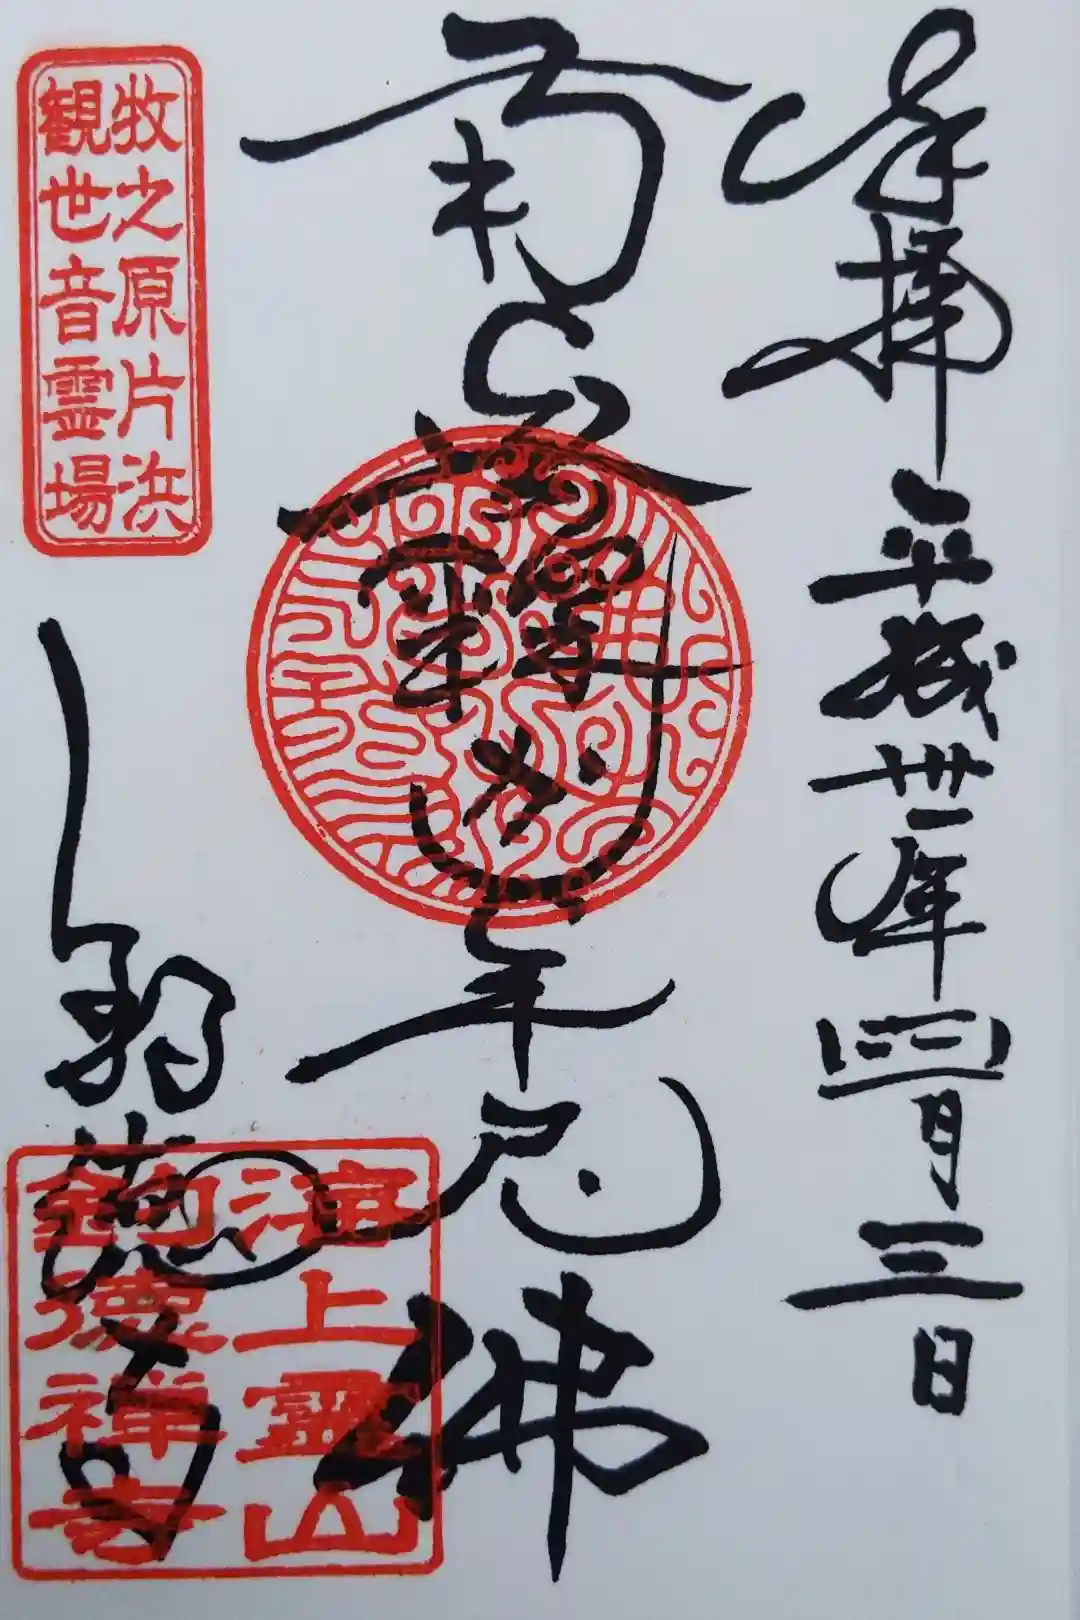 奉拝 平成卅一年四月三日
南無釋迦牟尼佛
牧之原片浜
観世音霊場
海上霊山
釣徳禅寺
釣徳寺